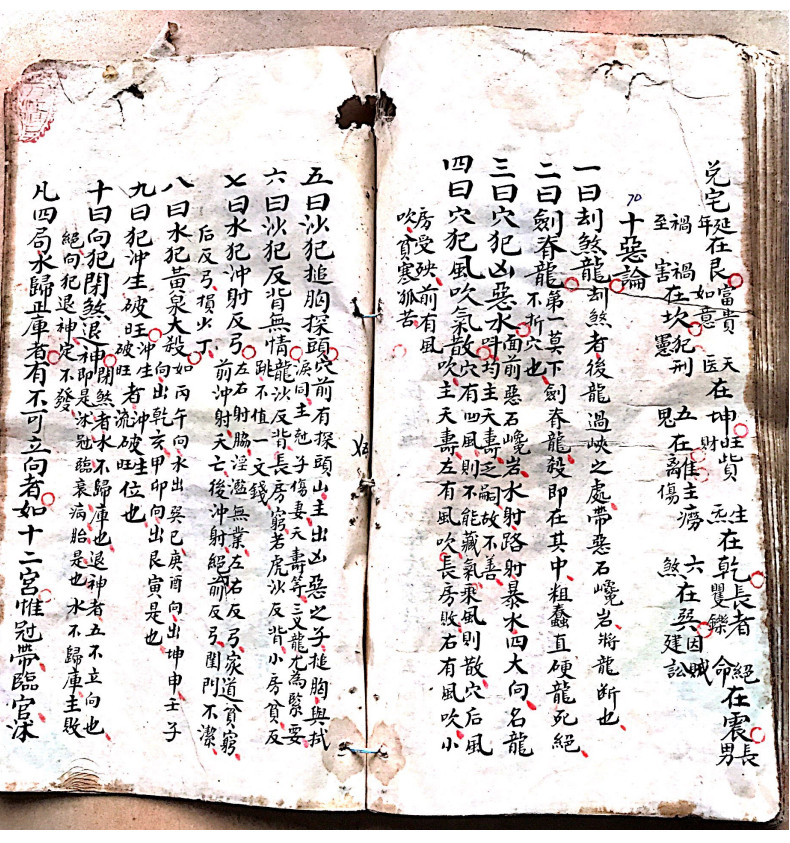 兌宅延年在艮富貴如意天医在坤旺財生炁在乾長者矍鑠絕命在震長男
禍害在坎犯刑五鬼在離主癆傷六煞在巽因賊建訟
十惡論
一曰刦煞龍刦煞者後龍過峽之處帶惡石巉岩將龍断也
二曰劍脊龍第一莫下劍脊龍殺即在其中粗蠢直硬龍死絕不折穴也
三曰穴犯凶惡水面前惡石巉岩水射路射暴水四大向名龍主夭壽乏嗣故不善
四曰穴犯風吹氣散穴有凹風則不能藏氣乘風則散穴后風吹主夭壽左有風吹長房敗右有風吹小房受殃前有風吹貧寒狐苦
五曰沙犯搥胸探頭穴前有探頭山主出凶惡之子搥胸與拭淚同主尅子傷妻夭壽等三叉龍尤為緊要
六曰沙犯反背無情龍沙反背長房窮若虎沙反背小房貧反跳不值一文錢
七曰水犯沖射反弓左右射脇淫濫無業左右反弓家道貧窮前沖射夭亡後沖射絕前反弓閨門不潔后反弓損少丁
八曰水犯黃泉大殺如丙午向水出巽巳庚酉向出坤申壬子向出乾亥甲卯向出艮寅是也
九曰犯沖生破旺沖生者沖生位也破旺者流破旺位也
十曰向犯閉煞退神閉煞者水不歸庫也退神者五不立向也即是沐冠臨衰病胎是也水不歸庫主敗絕向犯退神定不發
凡四局水歸正庫者有不可立向者如十二宮惟冠帶臨官沐